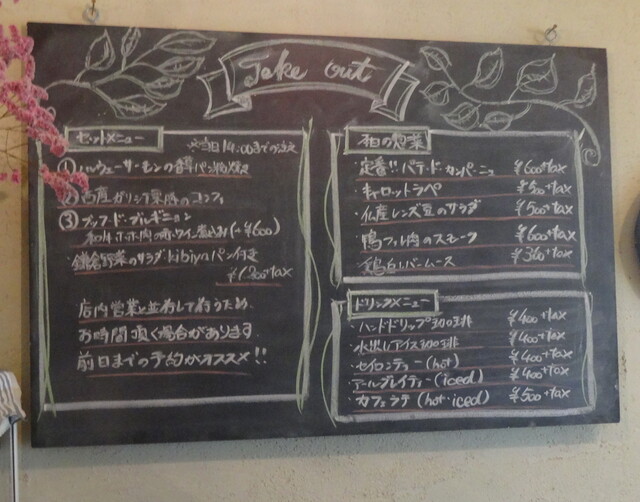 Take out
セットメニュー
※当日14:00までの注文
① ノルウェーサーモンの香草パン粉焼き
② 産ガリシア栗豚のコンフィ
③ ブッフ・ド・ブルギニョン
和牛ホホ肉の赤ワイン煮込み(+¥600)
・鎌倉野菜のサラダ・kibiyaパン付き
¥1,300+tax
店内営業と並行して行うため、
お時間頂く場合があります
前日までの予約がオススメ!!
本日の惣菜
・定番!! パテ・ド・カンパーニュ ¥600+tax
・キャロットラペ ¥500+tax
・仏産レンズ豆のサラダ ¥500+tax
・鴨フィレ肉のスモーク ¥600+tax
・鶏白レバームース ¥360+tax
ドリンクメニュー
・ハンドドリップ珈琲 ¥400+tax
・水出しアイス珈琲 ¥400+tax
・セイロンティー (hot) ¥400+tax
・アールグレイティー (iced) ¥400+tax
・カフェラテ (hot・iced) ¥500+tax